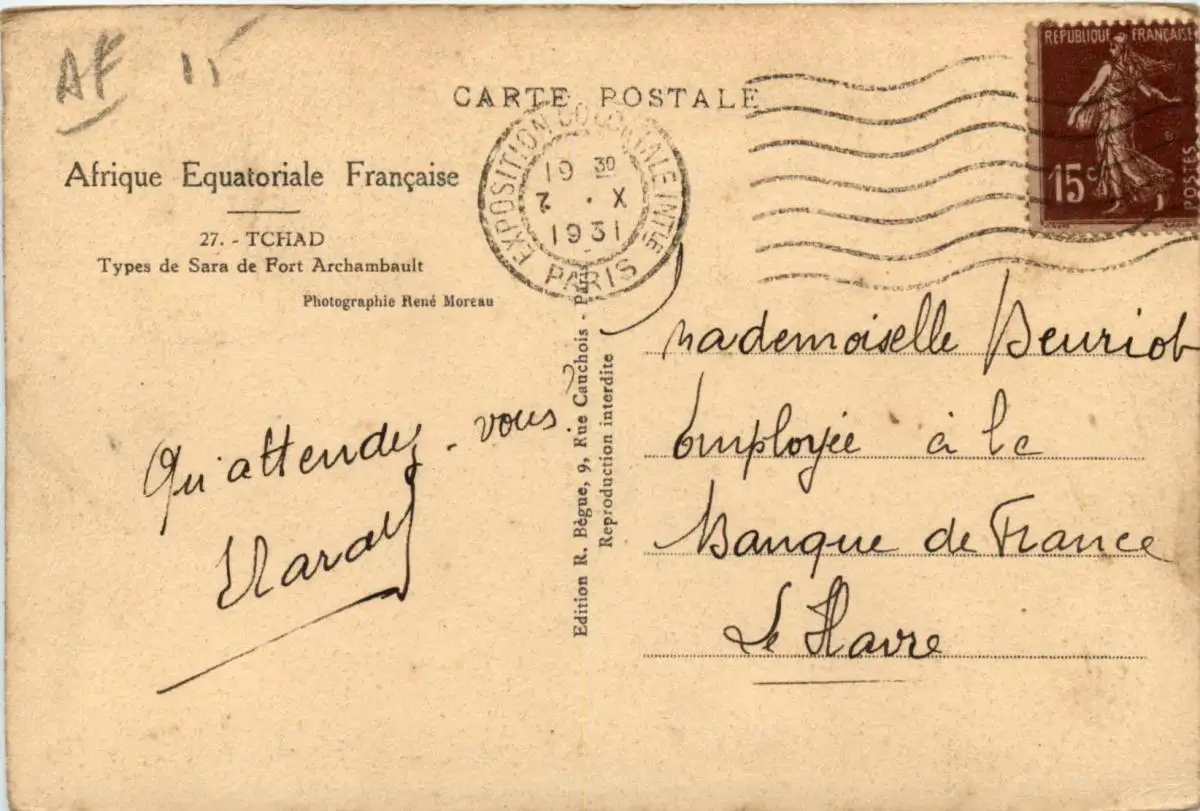 AF 15
CARTE POSTALE
Afrique Equatoriale Française
27. - TCHAD
Types de Sara de Fort Archambault
Photographie René Moreau
EXPOSITION COLONIALE INTLE
PARIS
19 30
7 · X
1931
REPUBLIQUE FRANÇAISE
15c
POSTES
Qu'attendez-vous?
Edition R. Bègue, 9, Rue Cauchois - Paris
Reproduction interdite
Mademoiselle
Employée à la
Banque de France
Le Havre